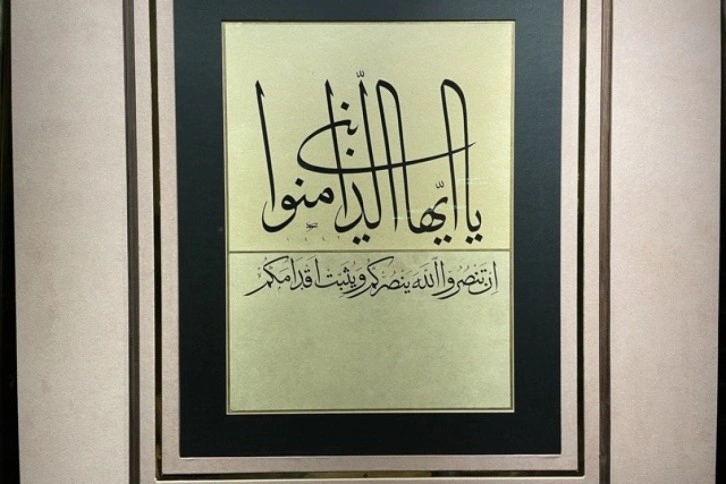 يا ايّها الّذين امنوا
ان تَنصُروا اللّٰهَ يَنصُركُم وَيُثَبِّت اَقدامَكُم